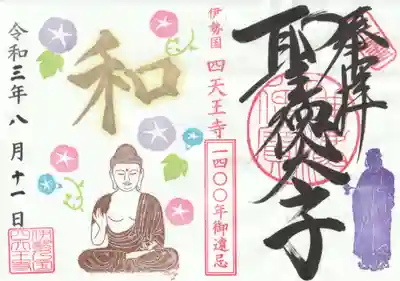 奉拝
聖徳太子
伊勢国 四天王寺
一四〇〇年御遠忌
和
令和三年八月十一日
伊勢国
四天王寺